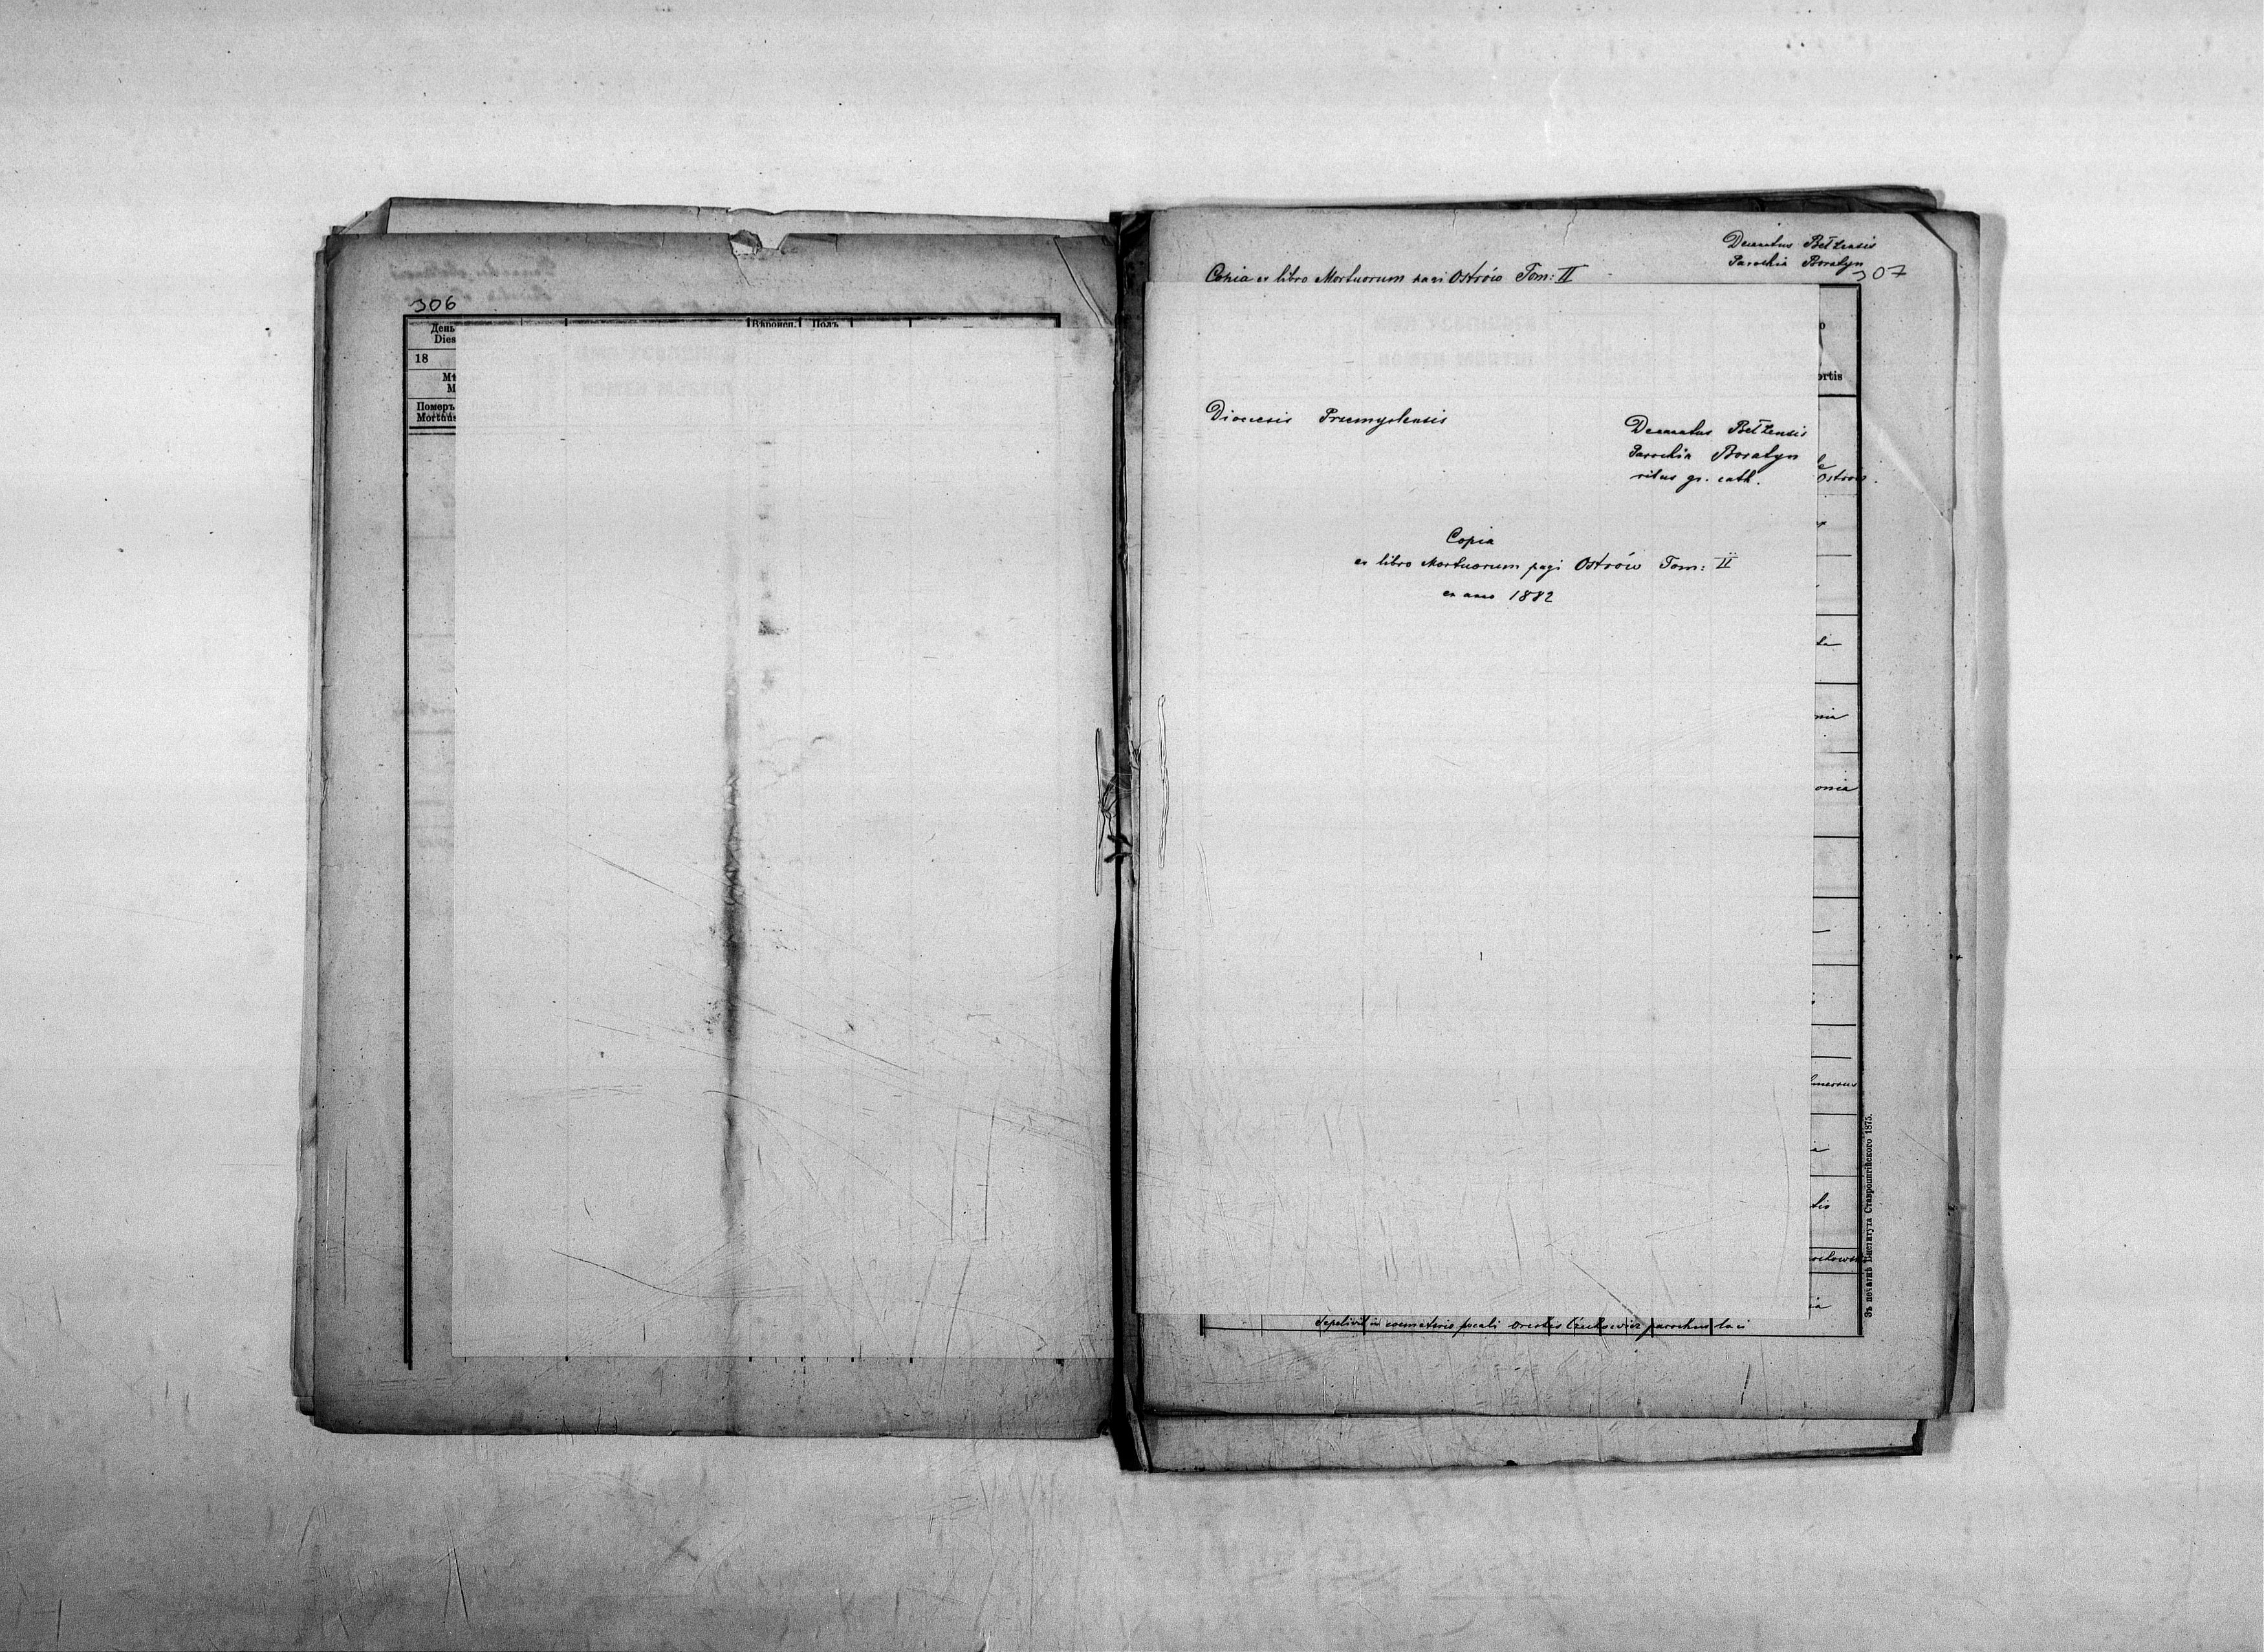 306
День
Dies
18
Померъ
Вѣроисп.
Полъ
Decanatus Bełzensis
Parochia Boratyn
307
Copia ex libro Mortuorum pagi Ostrów Tom: II
ortis
Dioecesis Premyslensis
Decanatus Bełzensis
Parochia Boratyn
ritus gr. cath.
Ostrów.
Copia
ex libro Mortuorum pagi Ostrów Tom: II
ex anno 1882
Sepelivit in coemeterio locali Orestes parochus loci
Зъ печатнѣ Института Ставропигійского 1875.